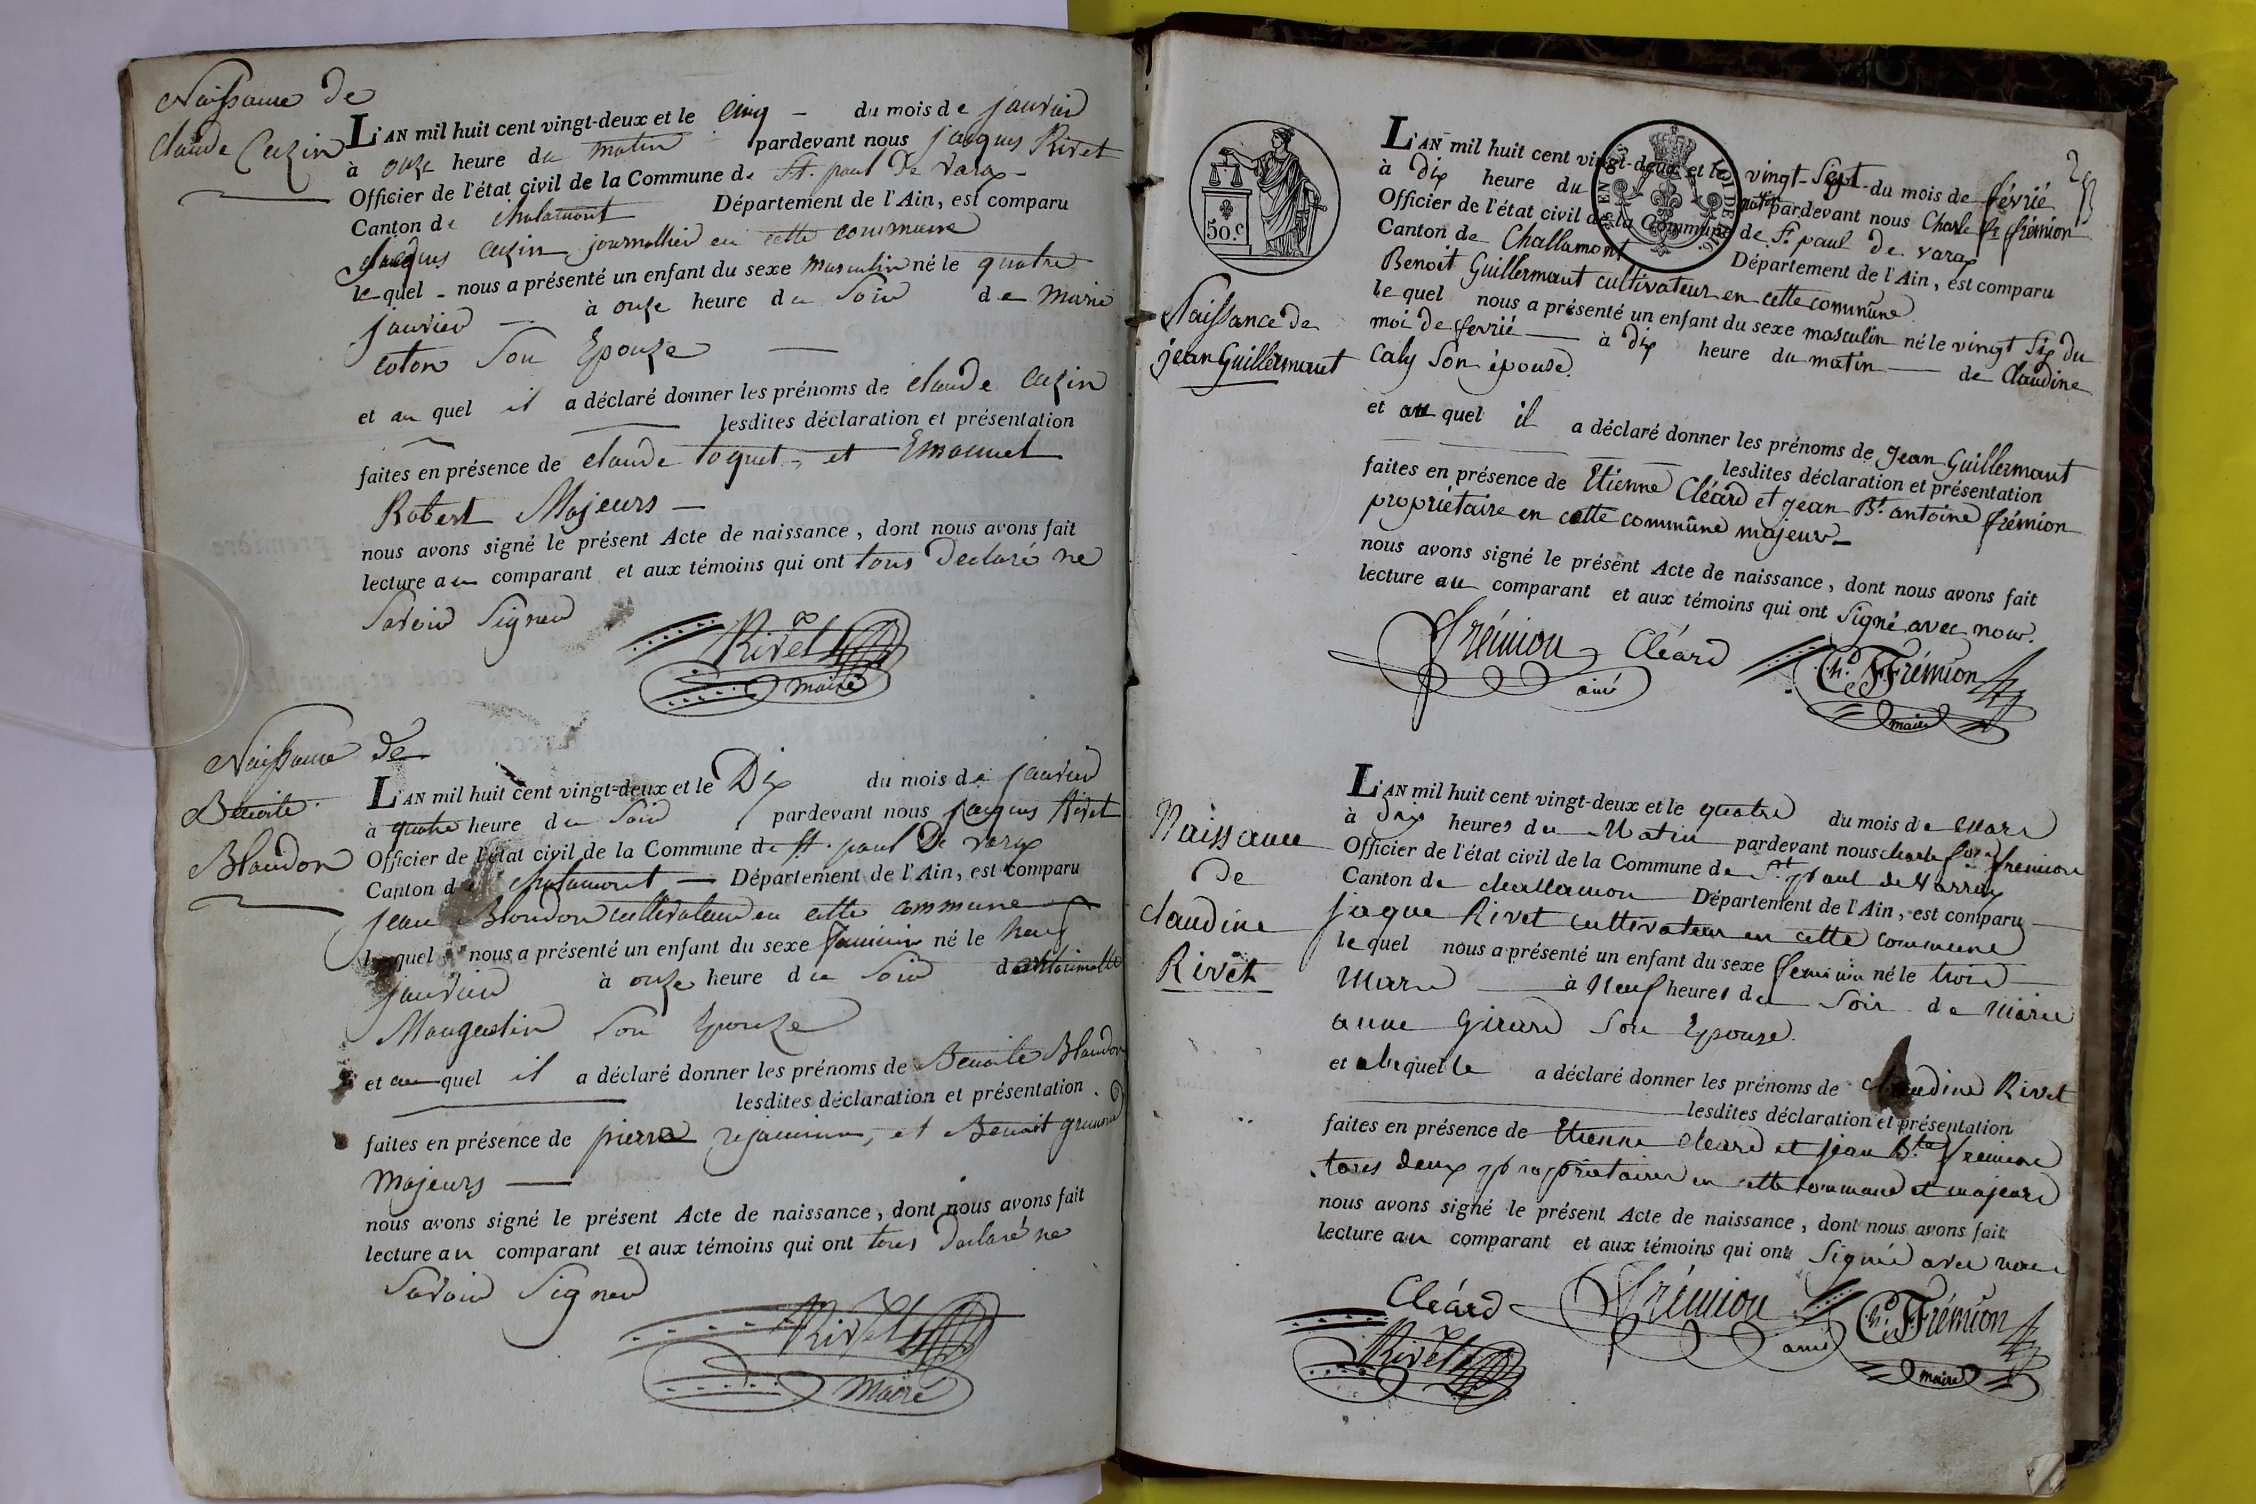 Naissance de
Claude Cuzin
L'AN mil huit cent vingt-deux et le cinq - du mois de janvier
à onze heure du matin pardevant nous jacques Rivet
Officier de l'état civil de la Commune de St. paul De varax -
Canton de chalamont Département de l'Ain, est comparu
jacques cuzin journallier en cette commune
le quel - nous a présenté un enfant du sexe masculin né le quatre
janvier - à onze heure du soir de Marie
coton son Epouze
et au quel il a déclaré donner les prénoms de claude cuzin
lesdites déclaration et présentation
faites en présence de claude toquet, et Emanuel
Robert Majeurs -
nous avons signé le présent Acte de naissance, dont nous avons fait
lecture au comparant et aux témoins qui ont tous declaré ne
savoir signer
Rivet
maire
Naissance de
Benoite
Blandon
L'AN mil huit cent vingt-deux et le Dix du mois de janvier
à quatre heure du soir pardevant nous jacques Rivet
Officier de l'état civil de la Commune de st. paul De varax
Canton de chalamont - Département de l'Ain, est comparu
jean Blondon cultivateur en cette commune
le quel nous a présenté un enfant du sexe feminin né le neuf
janvier à onze heure du soir de antoinette
Maugestin son Epouze
et au quel il a déclaré donner les prénoms de Benoite Blandon
lesdites déclaration et présentation
faites en présence de pierre rejaunier, et Benoit
Majeurs -
nous avons signé le présent Acte de naissance, dont nous avons fait
lecture au comparant et aux témoins qui ont tous declaré ne
savoir signer
Rivet
Maire
50.c
L'AN mil huit cent vingt-deux et le vingt-sept du mois de février
à dix heure du matin pardevant nous Charle fr frémion
Officier de l'état civil de la Commune de St. paul de varax
Canton de Challamont Département de l'Ain, est comparu
Benoit Guillermaut cultivateur en cette commune
le quel nous a présenté un enfant du sexe masculin né le vingt six du
moi de fevrié - à dix heure du matin - de Claudine
Caly son épouse.
Naissance de
jean Guillermaut
et au quel il a déclaré donner les prénoms de Jean Guillermaut
lesdites déclaration et présentation
faites en présence de Etienne Cléard et jean Bte. antoine frémion
propriétaire en cette commune majeur -
nous avons signé le présent Acte de naissance, dont nous avons fait
lecture au comparant et aux témoins qui ont signé avec nous.
Frémion Cléard Ch. F. Frémion
ainé maire
Naissance
de
claudine
Rivet
L'AN mil huit cent vingt-deux et le quatre du mois de mars
à dix heures du Matin pardevant nous charle fois fremion
Officier de l'état civil de la Commune de St. paul de Varrax
Canton de challamon Département de l'Ain, est comparu
jaque Rivet cultivateur en cette commune
le quel nous a présenté un enfant du sexe feminin né le trois
Mars à Neuf heures du soir de Marie
anne Girard son Epouze.
et alequelle a déclaré donner les prénoms de claudine Rivet
lesdites déclaration et présentation
faites en présence de Etienne cleard et jean Bte fremion
tous deux proprietaires en cette commune et majeurs
nous avons signé le présent Acte de naissance, dont nous avons fait
lecture au comparant et aux témoins qui ont signé avec nous
Cléard Frémion Ch. F. Frémion
Rivet ainé maire